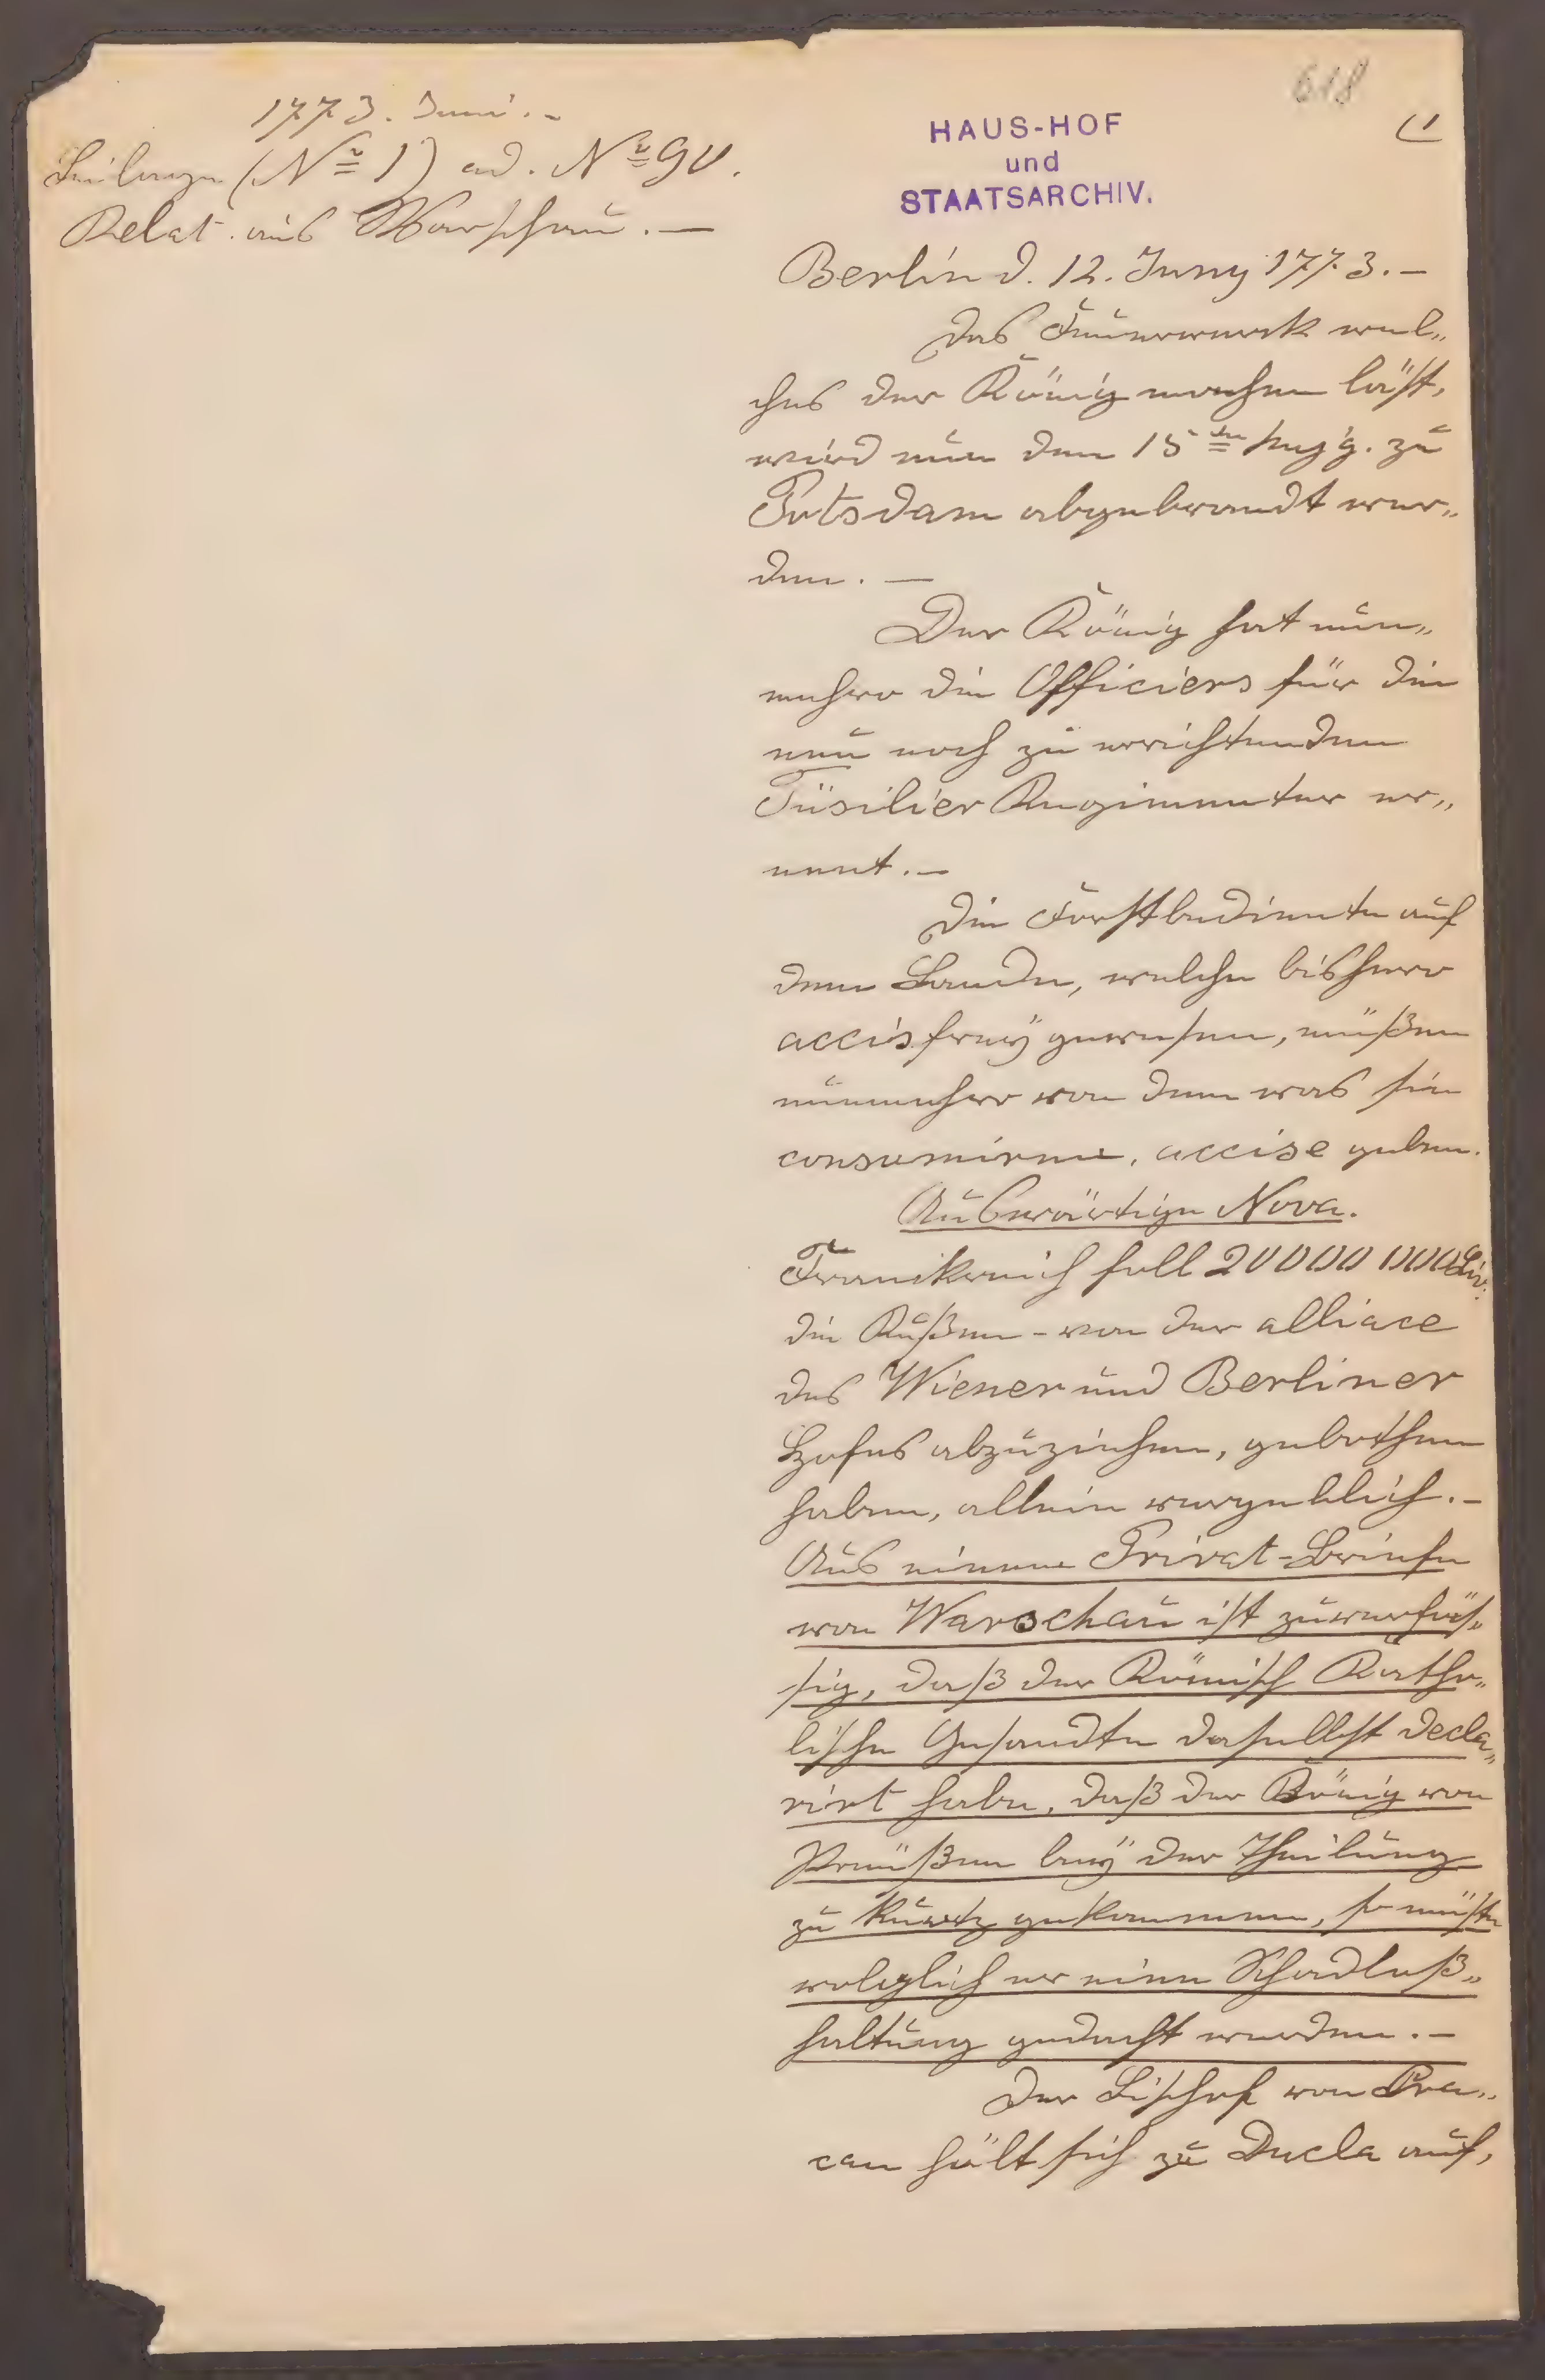 618
(1
1773. Juni. -
Beilage (No 1) ad. No 90.
Relat. aus Warschau. —
HAUS-HOF
und
STAATSARCHIV.
Berlin d. 12. Juny 1773. -
Das Feuerwerk wel„
ches der König machen läßt,
wird nun den 15ten huj g. zu
Potsdam abgebrandt wer„
den. —
Der König hat nun„
mehro die Officiers für die
neu noch zu errichtenden
Füsilier Regimenter er„
nent. -
Die Forstbediente auf
dem Lande, welche bishero
accis frey gewesen, müßen
nunmehro von dem was sie
consumiren, accise geben.
Außwärtige Nova.
Frankreich soll 20000000 Liv:
die Rußen - von der alliace
des Wiener und Berliner
Hofes abzuziehen, gebothen
haben, allein vergeblich. -
Aus einem Privat-Briefe
von Warschau ist zuverläs„
sig, daß der Römisch Katho„
lische Gesandte daselbst decla„
rirt habe, daß der König von
Preußen bey der Theilung
zu kurtz gekommen, so müste
folglich er eine Schadloß„
haltung gedacht werden. -
Der Bischof von Cra„
cau hält sich zu Ducla auf,